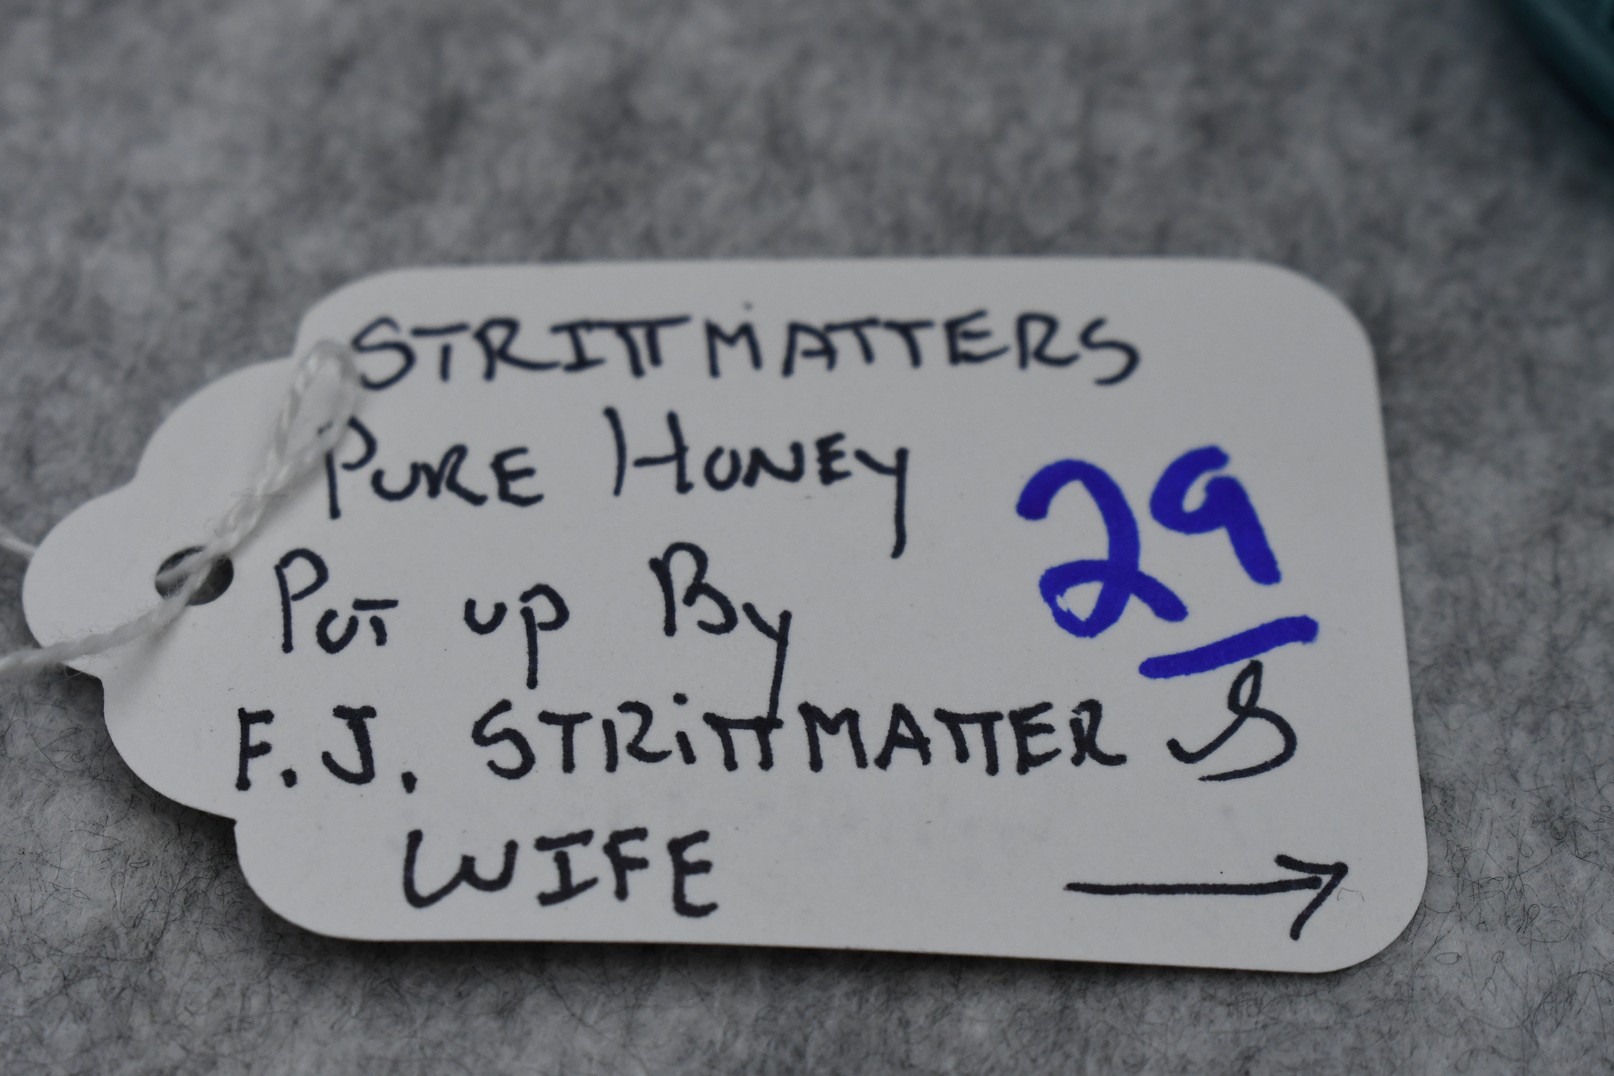 STRITTMATTERS
PURE HONEY
PUT UP BY
F.J. STRITTMATTER S
WIFE
29